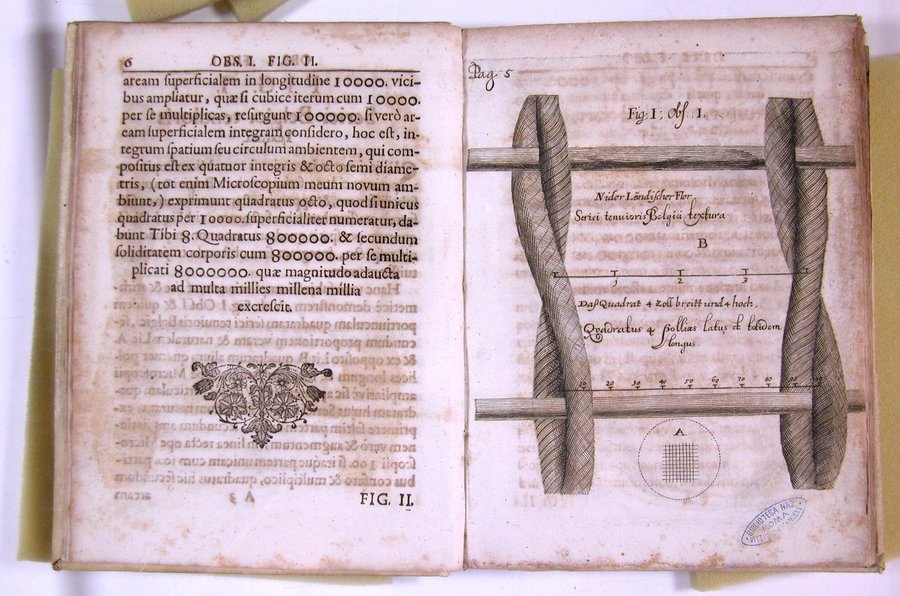 6 OBS. I. FIG. II.
aream superficialem in longitudine 10000. vici-
bus ampliatur, quæ si cubice iterum cum 10000.
per se multiplicas, resurgunt 100000. si verò ar-
eam superficialem integram considero, hoc est, in-
tegrum spatium seu circulum ambientem, qui com-
positus est ex quatuor integris & octo semi diame-
tris, (tot enim Microscopium meum novum am-
biunt,) exprimunt quadratus octo, quod si unicus
quadratus per 10000. superficialiter numeratur, da-
bunt Tibi 8. Quadratus 800000. & secundum
soliditatem corporis cum 800000. per se multi-
plicati 8000000. quæ magnitudo adaucta
ad multa millies millena millia
excrescit.
FIG. II.
Pag. 5
Fig. I; Obs. I.
Nider Ländischer Flor
Serici tenuioris Belgici textura
B
1 2 3
Daß Quadrat 4 Zoll breitt und 4 hoch,
Quadratus 4 pollices latus et totidem
longus.
10 20 30 40 50 60 70 80 90
A
BIBLIOTECA NAZ
ROMA